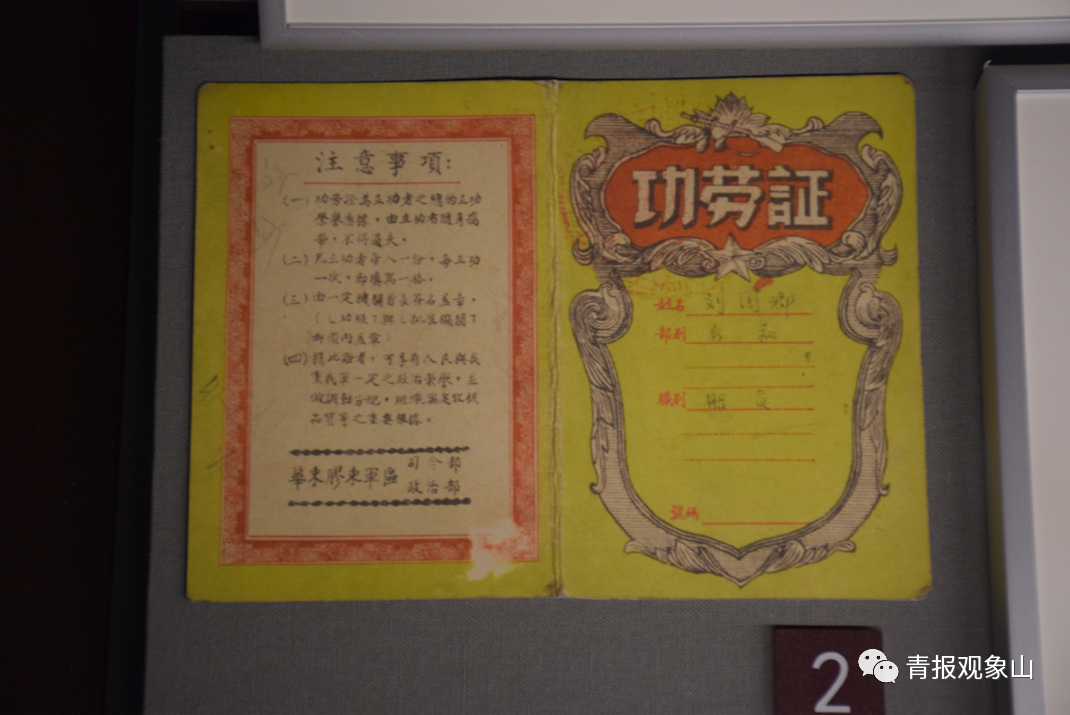 注意事項:
(一)功勞證為立功者之總的立功
榮譽憑據,由立功者隨身攜
帶,不得遺失。
(二)凡立功者每人一份,每立功
一次,即填寫一格。
(三)由一定機關首長簽名蓋章,
(﹂功級﹁與﹂批准機關﹁
兩項內蓋章)
(四)持此證者,可享有人民與我
黨我軍一定之政治榮譽,並
做調動分配,組織鑒定
品質等之重要根據。
華東膠東軍區
司令部
政治部
功劳証
姓名 刘 周 卿
部别
職别 船 員
號碼
2
青报观象山